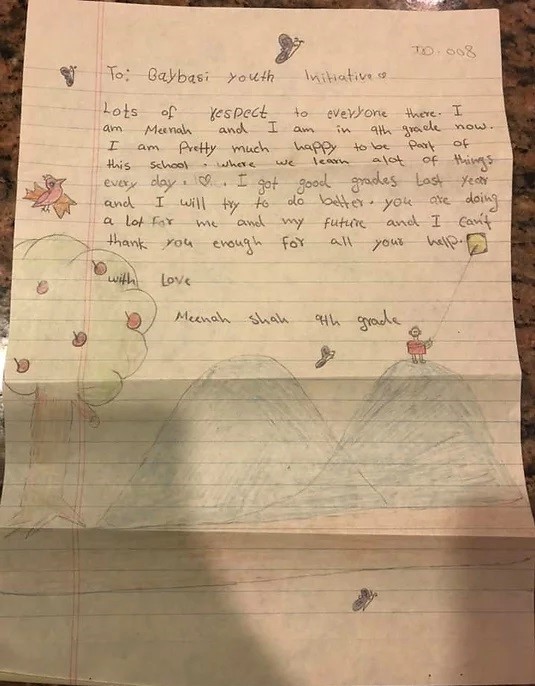 ID.008
To: Baybasi youth Initiative
Lots of respect to everyone there. I
am Meenah and I am in 9th grade now.
I am Pretty much happy to be Part of
this school. where we learn alot of things
every day. ♡. I got good grades last year
and I will try to do better. you are doing
a lot for me and my future and I can't
thank you enough for all your help.
with Love
Meenah shah 9th grade